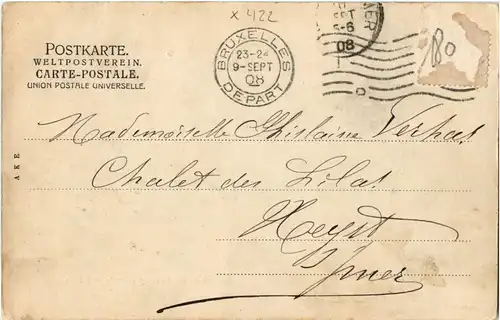 x 422
POSTKARTE.
WELTPOSTVEREIN.
CARTE-POSTALE.
UNION POSTALE UNIVERSELLE.
BRUXELLES
23-24
9-SEPT
08
DEPART
SEPT
5-6
08
80
Mademoiselle Ghislaine Verhas
Chalet des Lilas
Heyst
s/mer
AKE